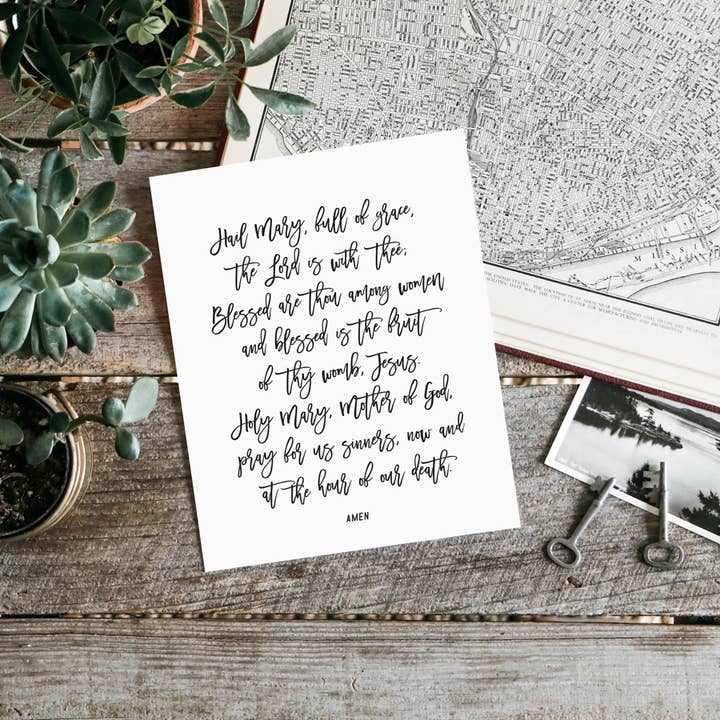 Hail Mary, full of grace,
the Lord is with thee;
Blessed are thou among women
and blessed is the fruit
of thy womb, Jesus.
Holy Mary, Mother of God,
pray for us sinners, now and
at the hour of our death.
AMEN
MISSI